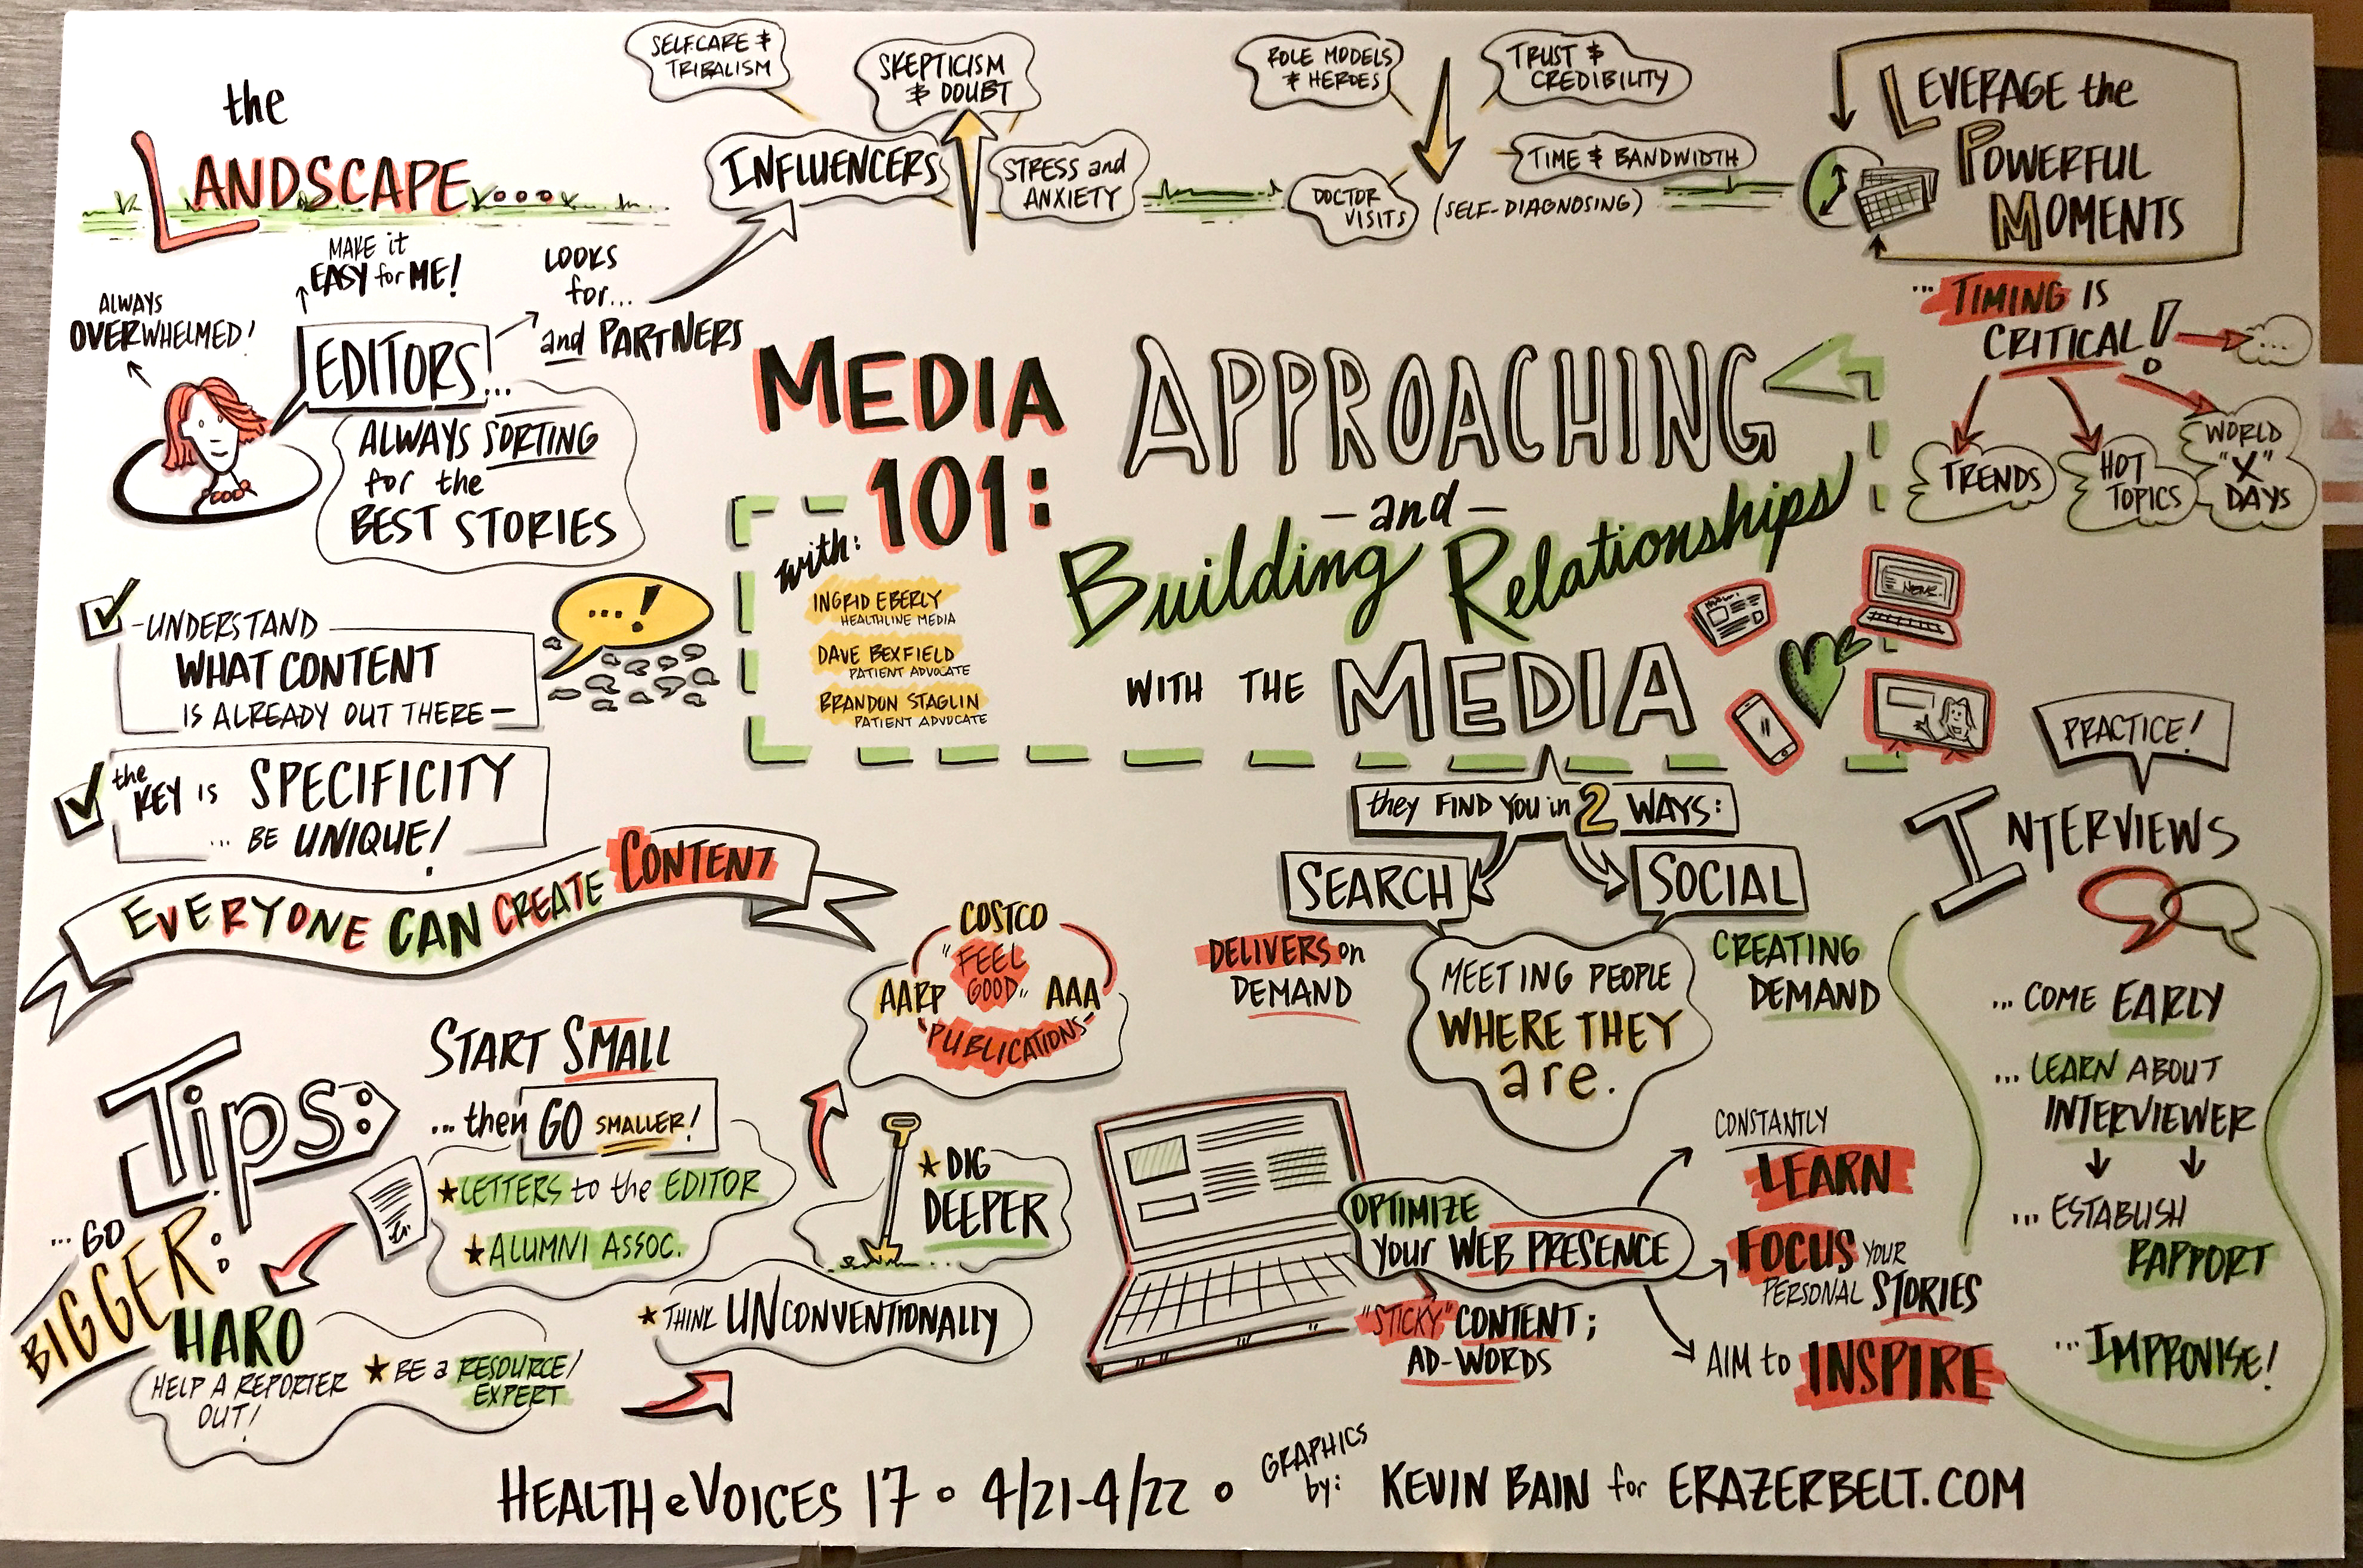 the
LANDSCAPE....
SELFCARE &
TRIBALISM
SKEPTICISM
& DOUBT
INFLUENCERS
STRESS and
ANXIETY
ROLE MODELS
& HEROES
TRUST &
CREDIBILITY
TIME & BANDWIDTH
DOCTOR
VISITS
(SELF-DIAGNOSING)
LEVERAGE the
POWERFUL
MOMENTS
... TIMING IS
CRITICAL!
...
TRENDS
HOT
TOPICS
WORLD
"X"
DAYS
ALWAYS
OVERWHELMED!
MAKE it
EASY for ME!
LOOKS
for...
and PARTNERS
EDITORS...
ALWAYS SORTING
for the
BEST STORIES
MEDIA
101:
APPROACHING
-and-
Building Relationships
WITH THE MEDIA
with:
INGRID EBERLY
HEALTHLINE MEDIA
DAVE BEXFIELD
PATIENT ADVOCATE
BRANDON STAGLIN
PATIENT ADVOCATE
NEWS
-UNDERSTAND
WHAT CONTENT
IS ALREADY OUT THERE-
...!
the
KEY IS SPECIFICITY
... BE UNIQUE!
EVERYONE CAN CREATE CONTENT
they FIND YOU in 2 WAYS:
SEARCH
SOCIAL
DELIVERS on
DEMAND
CREATING
DEMAND
MEETING PEOPLE
WHERE THEY
are.
PRACTICE!
INTERVIEWS
... COME EARLY
... LEARN ABOUT
INTERVIEWER
... ESTABLISH
RAPPORT
... IMPROVISE!
Tips:
START SMALL
... then GO SMALLER!
LETTERS to the EDITOR
ALUMNI ASSOC.
COSTCO
"FEEL
GOOD"
AARP
AAA
"PUBLICATIONS"
DIG
DEEPER
THINK UNCONVENTIONALLY
... GO
BIGGER:
HARO
HELP A REPORTER
OUT!
BE a RESOURCE/
EXPERT
OPTIMIZE
your WEB PRESENCE
"STICKY" CONTENT;
AD-WORDS
CONSTANTLY
LEARN
FOCUS YOUR
PERSONAL STORIES
AIM to INSPIRE
HEALTH eVOICES 17 • 4/21-4/22 •
GRAPHICS
by:
KEVIN BAIN for ERAZERBELT.COM